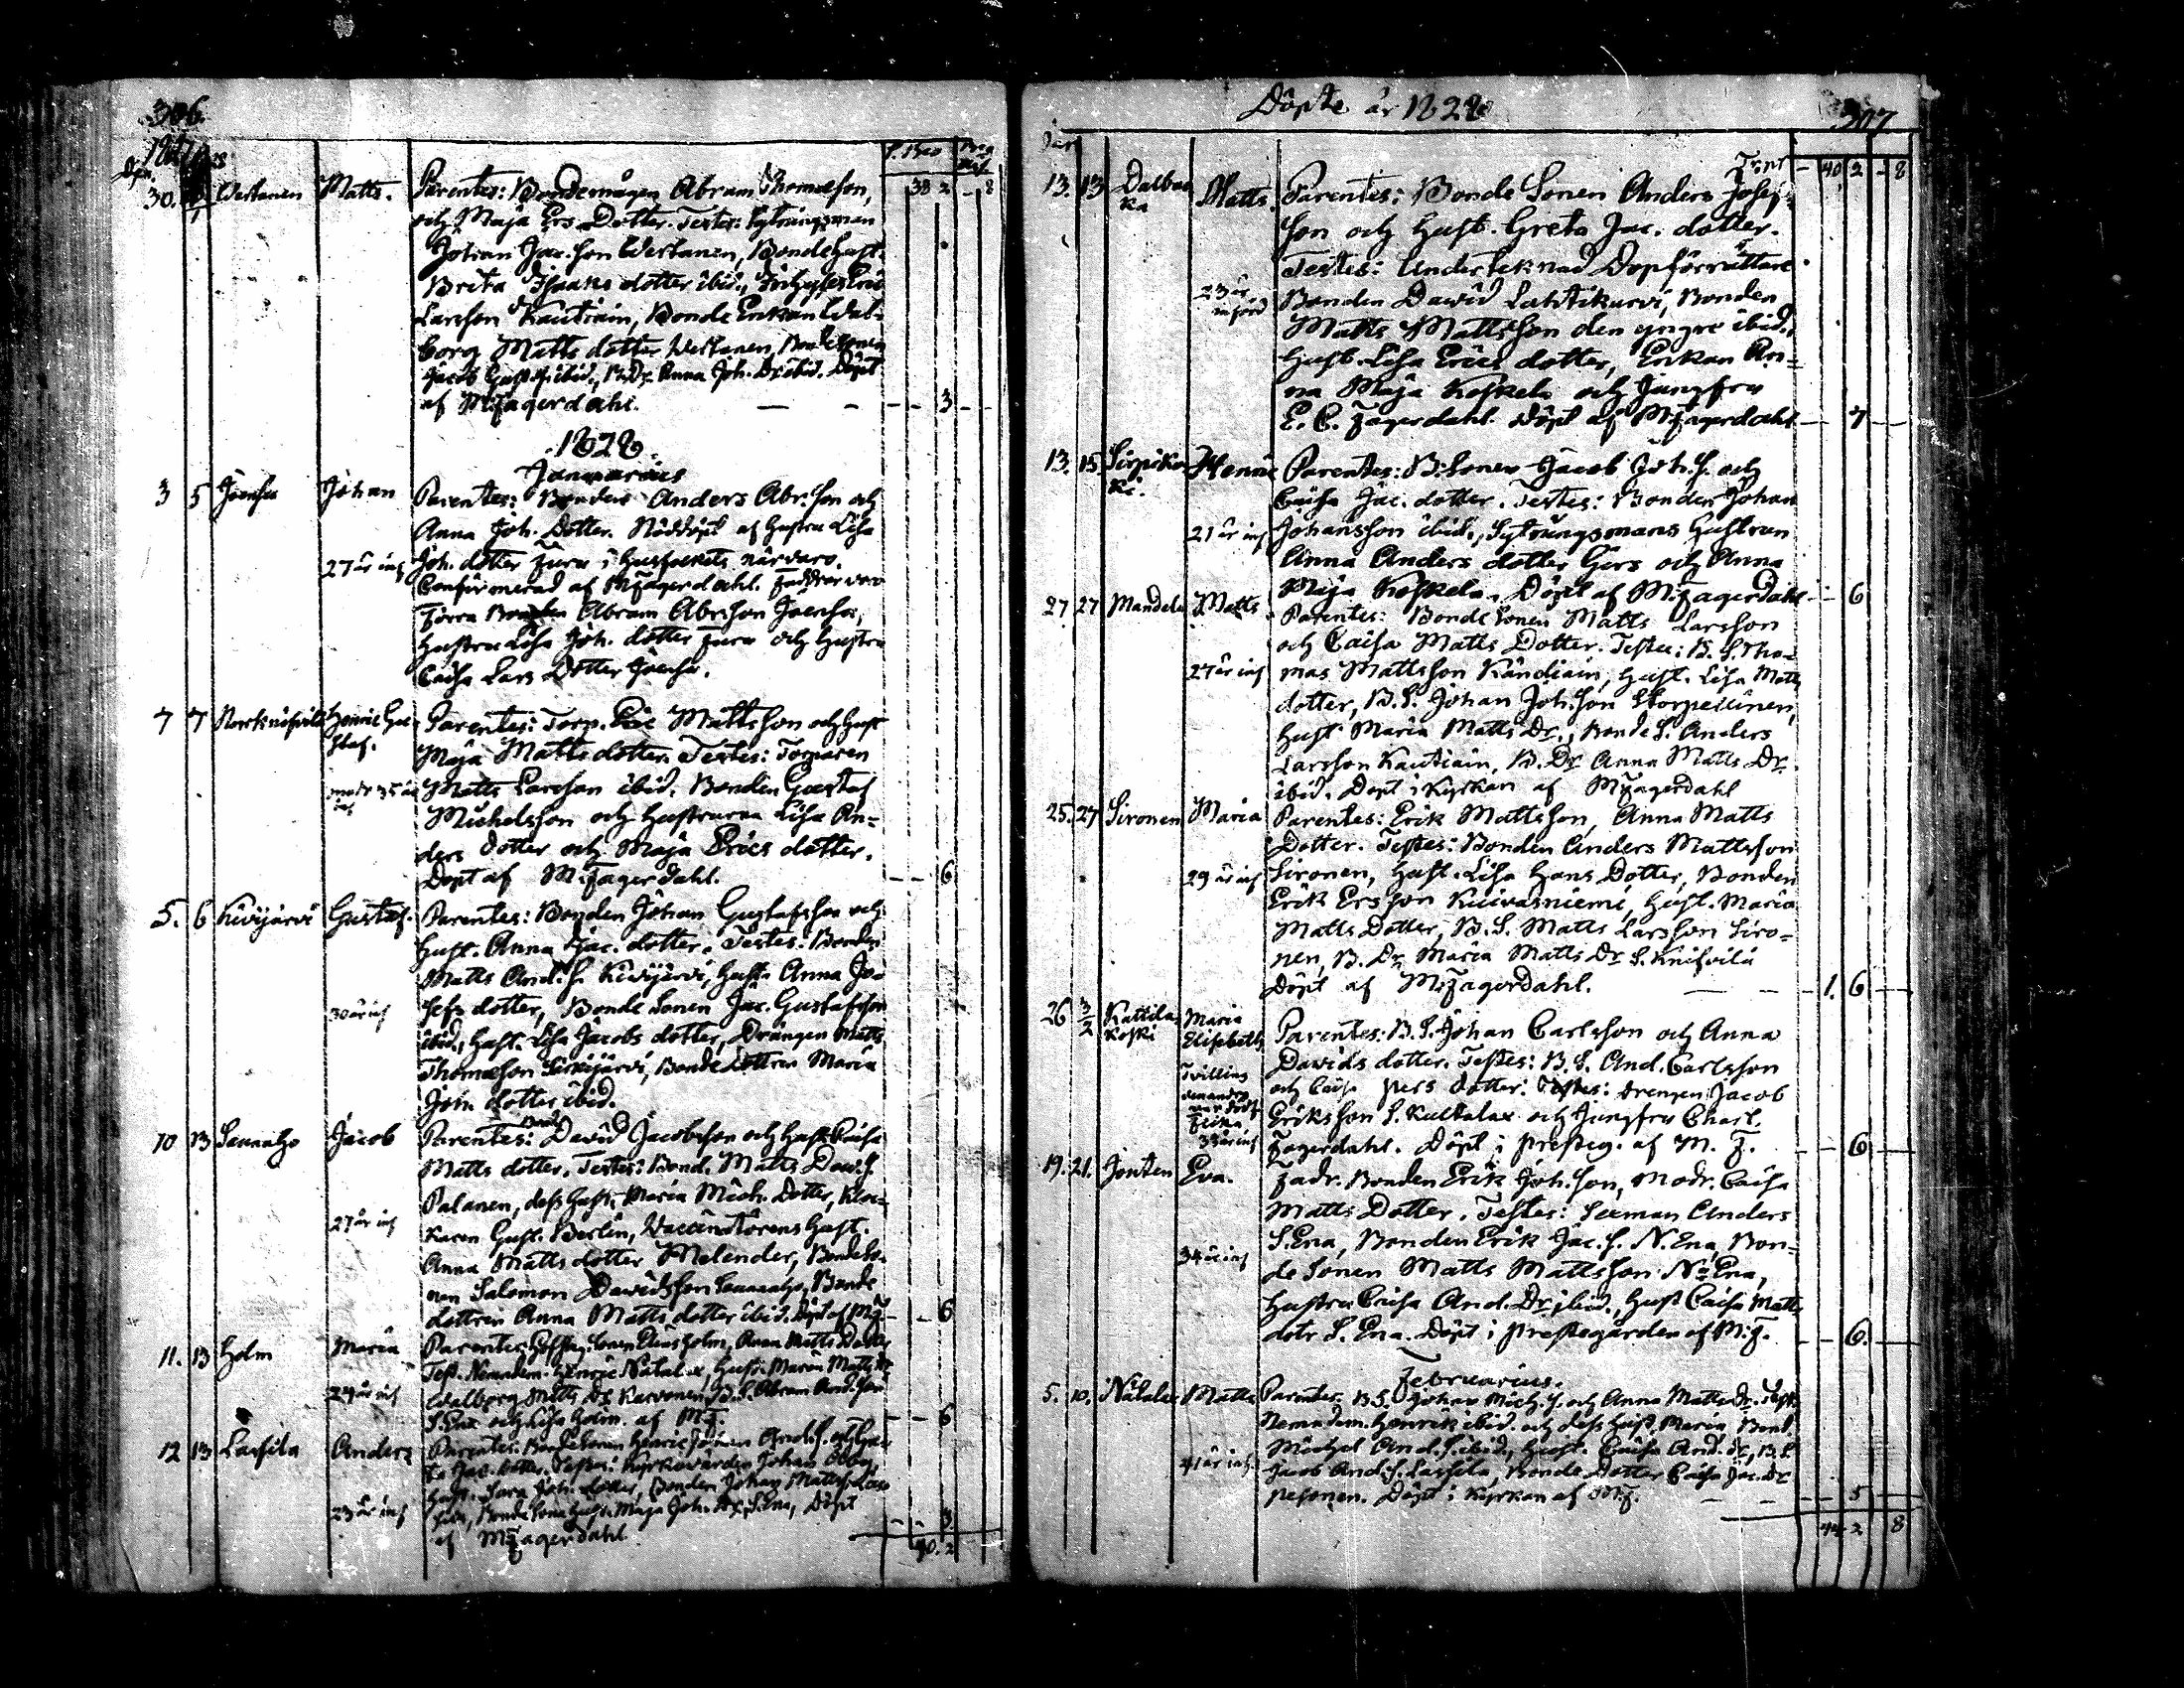 306
30. Wertanen Matts. Parentes: Bondemågen Abram Thomasson,
och Maja Ers Dotter. Testes: Sytningsman
Johan Jac.son Wertanen, Bonde Hust.
Brita Isaaks dotter ibid., Inhyses Eric
Larsson Kautiain, Bonde Enkan Wal-
borg Matts dotter Wertanen, Bondesonen
Jacob Gust.s. ibid., B.Dr. Anna Joh. Dr ibid. Döpt
af M:Fagerdahl. — — 3
1828.
Januarius
3 5 Joensu Johan Parentes: Bonden Anders Abr.son och
Anna Joh. Dotter. Nöddöpt af Hustru Lisa
27 år inf Joh. dotter Furu i Husfolkets närvaro.
Confirmerad af M:Fagerdahl. Faddrar voro
Förra Bonden Abram Abr.son Joensu,
Hustru Lisa Joh. dotter Furu och Hustru
Caisa Lars Dotter Joensu.
7 7 Henric Gu- Parentes: Torp. Eric Mattsson och Hust
staf. Maja Matts dotter. Testes: Torparen
modr 35 år Matts Larsson ibid. Bonden Gustaf
inf Michelsson och Hustrurna Lisa An-
ders dotter och Maja Erics dotter.
Döpt af M:Fagerdahl. 6
5. 6 Kivijärvi Gustaf. Parentes: Bonden Johan Gustafsson och
Hust. Anna Jac. dotter. Testes: Bonden
Matts And.s. Kivijärvi, Hust. Anna Jo-
30 år inf sefs dotter, Bonde Sonen Jac. Gustafsson
ibid., Hust. Lisa Jacobs dotter, Drängen Matts
Thomasson Sirkijärvi, Bonde dottren Maria
Joh. dotter ibid.
10 13 Saunaho Jacob Parentes: David Jacobsson och Hust. Caisa
Matts dotter. Testes: Bond. Matts Dav.s.
Palanen, dess Hust. Maria Mich. Dotter, Kloc-
27 år inf karen Gust. Berlin, Vaccinatörens Hust.
Anna Matts dotter Melender, Bondeso-
nen Salomon Davidsson Saunaho, Bonde
dottren Anna Matts dotter ibid. Döpt af M:F. 6
11. 13 Holm Maria Anna Matts Dotter
Test. Nemndem. Henric Natalax, Hust. Maria Matts Dr
24 år inf Walborg Matts Dr Karvonen, B.S. Abram And.son
S.Ena och Lisa Holm. af M:F. 6
12 13 Lassila Anders Parentes: Bondesonen Henric Johan And.s. och Gre-
ta Jac. dotter. Testes: Kyrkovärden Johan
Hust. Sara Joh. dotter, Bonden Johan Matts.s. Las-
23 år inf sila, Bonde Sons Hust. Maja Joh. Dr S.Ena, Döpt
af M:Fagerdahl. 3
40. 2
Döpte år 1828 307
Jan
Tr:nt 40 2 - 8
13. 13 Dalbac- Matts. Parentes: Bonde Sonen Anders Josef-
ka son och Hust. Greta Jac. dotter.
Testes: Underteknad Dopförrättare
23 år Bonden David Lahtikurvi, Bonden
Matts Mattsson den yngre ibid.,
Hust. Lisa Erics dotter, Enkan An-
na Maja Koskela och Jungfru
E. C. Fagerdahl. Döpt af M:Fagerdahl — 7
13. 15 Sirpiko- Henric Parentes: B:Sonen Jacob Joh. S. och
ki. Caisa Jac. dotter. Testes: Bonden Johan
21 år inf Johansson ibid., Sytningsmans Hustrun
Anna Anders dotter Gers och Anna
Maja Koskela. Döpt af M:Fagerdahl. 6
27 27 Mandela Matts Parentes: Bonde Sonen Matts Larsson
och Caisa Matts Dotter. Testes: B. S. Tho-
27 år inf mas Mattsson Kändiäin, Hust. Lisa Matts
dotter, B.S. Johan Joh.son Storpellinen,
Hust. Maria Matts Dr., Bonde S. Anders
Larsson Kautiain, B. Dr Anna Matts Dr.
ibid. Döpt i Kyrkan af M:Fagerdahl
25. 27 Sironen Maria Parentes: Erik Mattsson, Anna Matts
Dotter. Testes: Bonden Anders Mattsson
29 år inf Sironen, Hust. Lisa Hans Dotter, Bonden
Erik Ersson Kuivasniemi, Hust. Maria
Matts Dotter, B. S. Matts Larsson Siro-
nen, B. Dr Maria Matts Dr S. Knifvilä
Döpt af M:Fagerdahl. — — 1. 6
26 3/2 Kattila- Maria Parentes: B.S. Johan Carlsson och Anna
koski Elisabeth Davids dotter. Testes: B.S. And. Carlsson
Tvilling och Caisa Pers dotter. Testes: Drengen Jacob
den andra var död Eriksson S. Kultalax och Jungfru Charl.
33 år inf Fagerdahl. Döpt i Prestg. af M. F. 6
19. 21. Jonten Eva. Fadr. Bonden Erik Joh.son, Modr. Caisa
Matts Dotter. Testes: Seeman Anders
34 år inf S.Ena, Bonden Erik Jac.s. N.Ena, Bon-
de Sonen Matts Mattsson N:Ena,
Hustru Caisa And. Dr ibid., Hust Caisa Matts
dotr S. Ena. Döpt i Prestegården af M:F. 6.
Februarius.
5. 10. Natalax Matts Parentes. B.S. Johan Mich.s. och Anna Matts dr. Test.
Nemndem. Henrik ibid. och dess Hust. Maria, Bond.
41 år inf Michel And.s. ibid., Hust. Caisa And. dr, B.S.
Jacob And.s. Lassila, Bonde Dotter Caisa Jac. Dr
Pesonen. Döpt i Kyrkan af M:F. — — 5
44 2 8